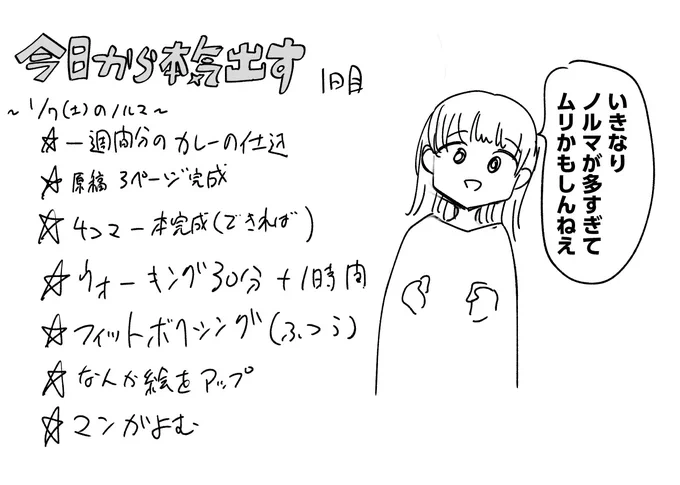 今日から本気出す
1日目
~1/7(土)のノルマ~
☆一週間分のカレーの仕込
☆原稿3ページ完成
☆4コマ一本完成(できれば)
☆ウォーキング30分+1時間
☆フィットボクシング(ふつう)
☆なんか絵をアップ
☆マンガよむ
いきなり
ノルマが多すぎて
ムリかもしんねえ